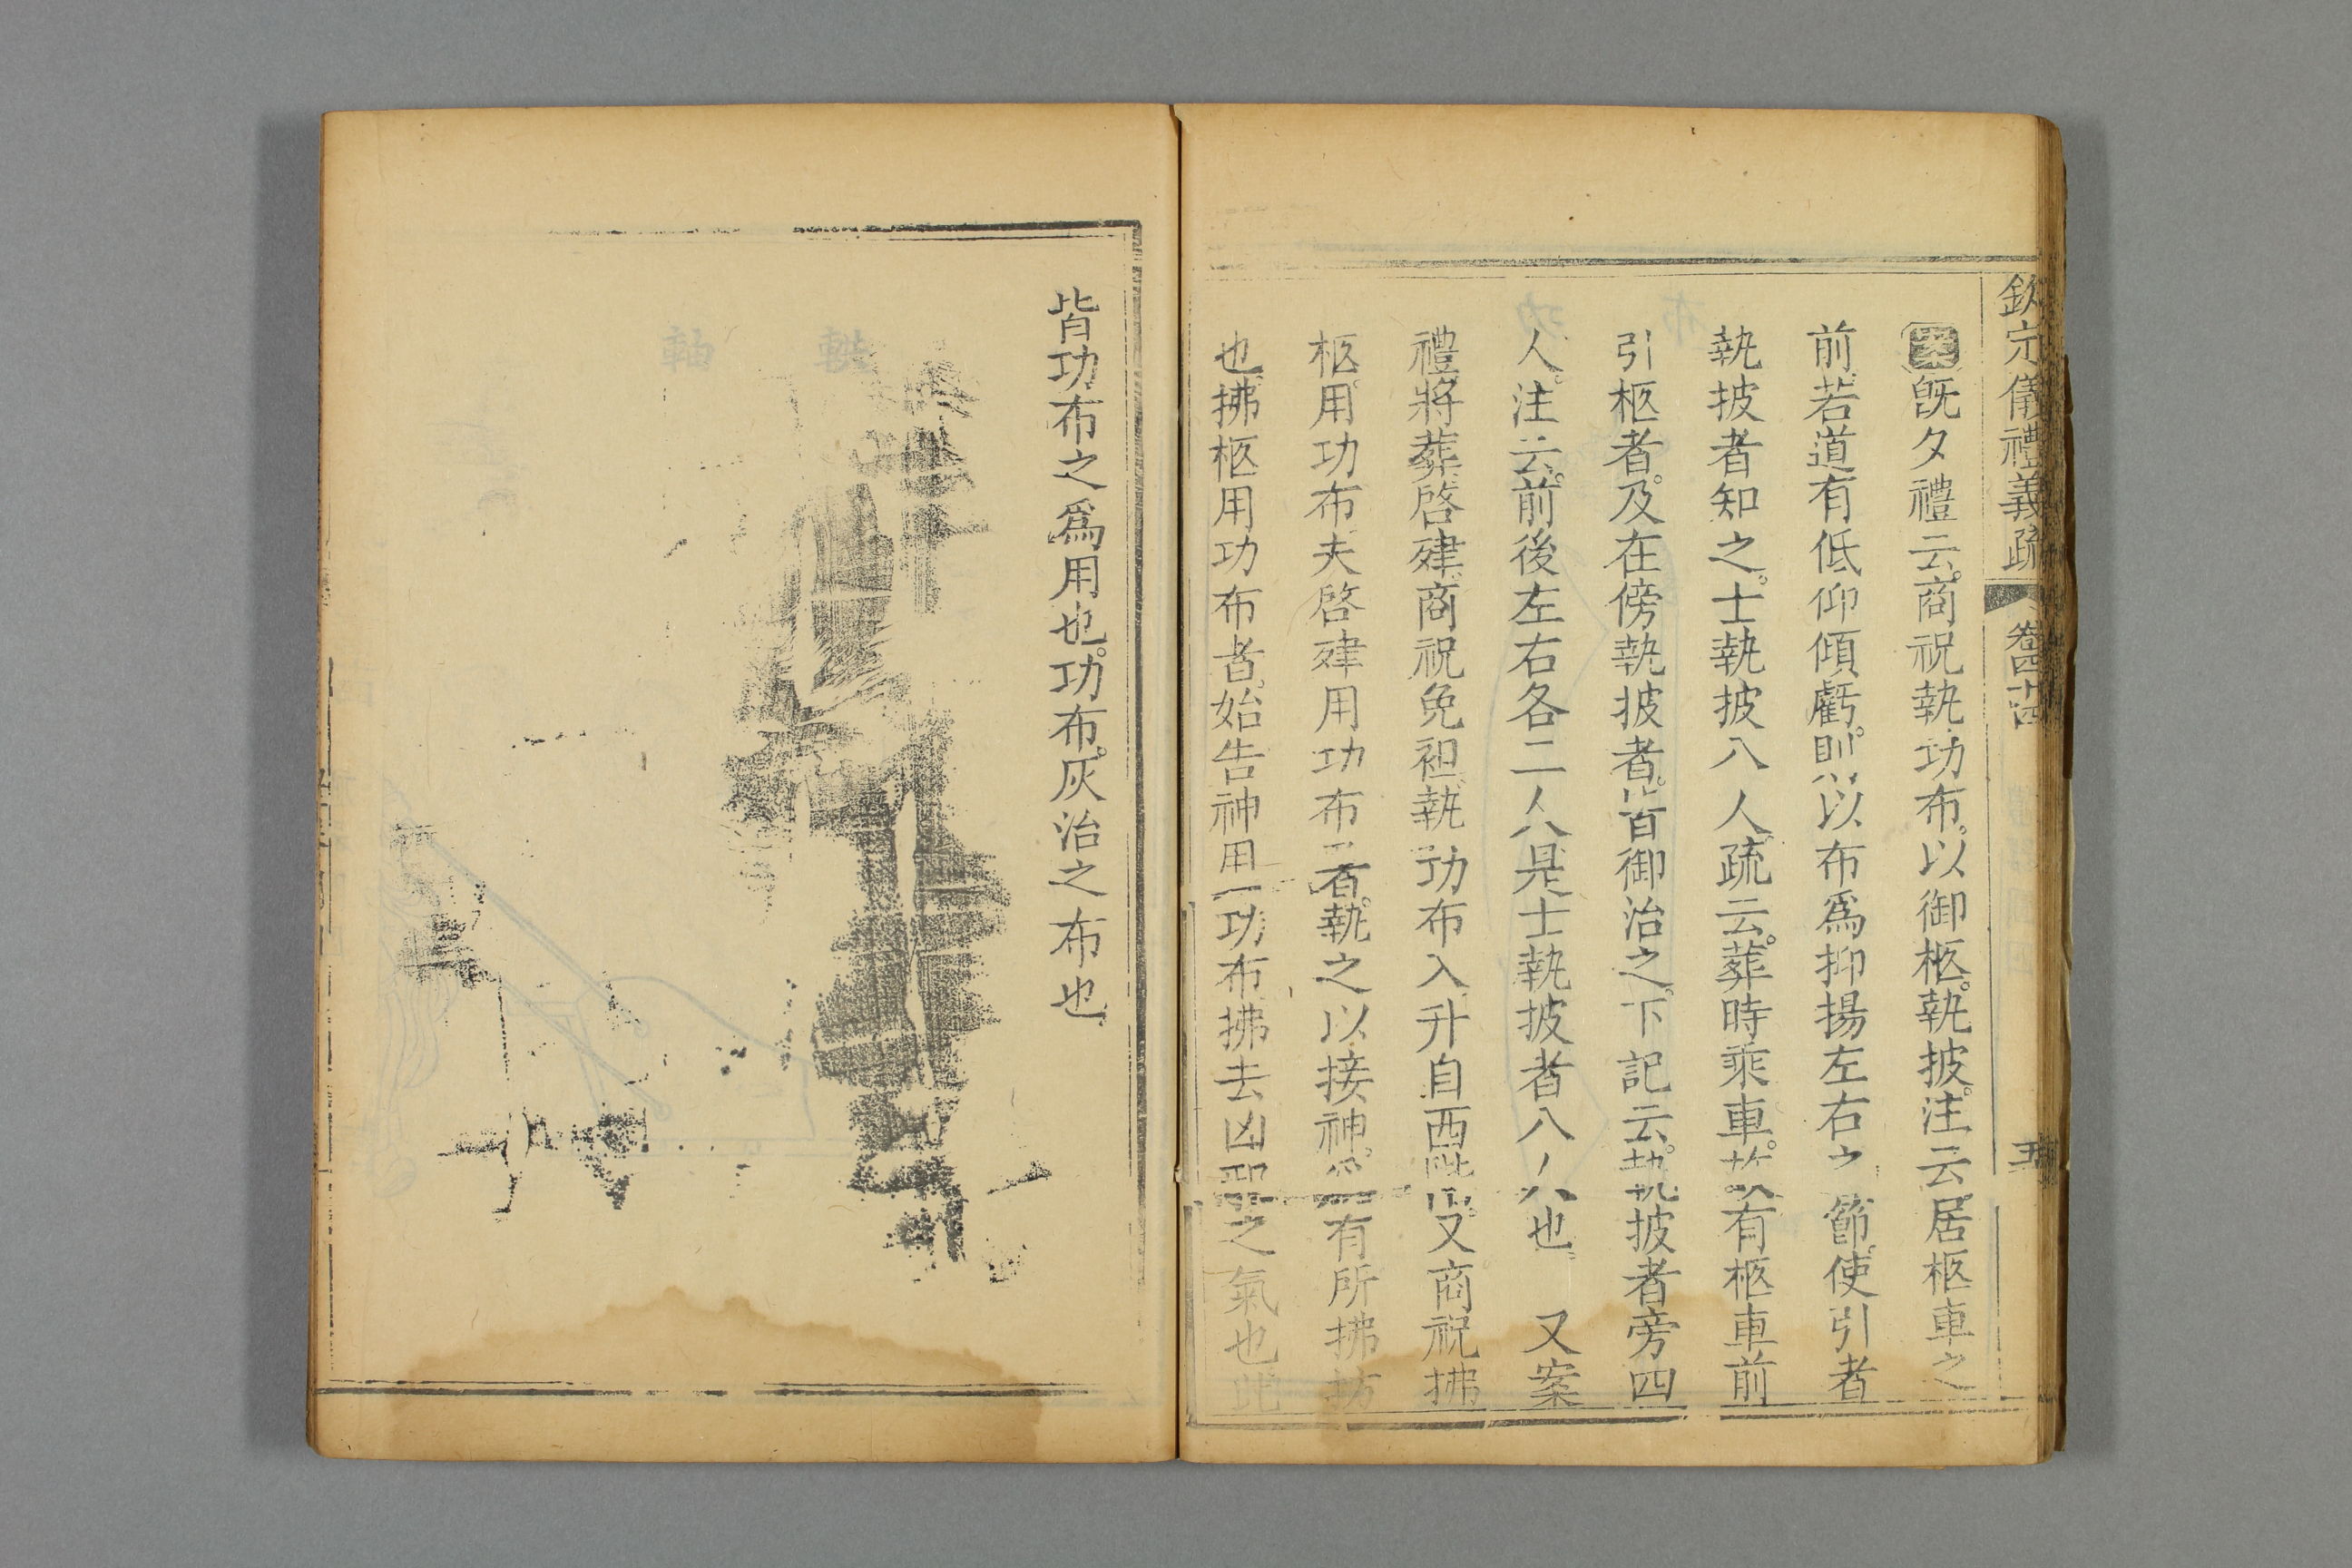 欽定儀禮義疏 卷四十四 五
案既夕禮云。商祝執功布。以御柩。執披。注云。居柩車之
前。若道有低仰傾虧。則以布爲抑揚左右之節。使引者
執披者知之。士執披八人。疏云。葬時乘車。故有柩車前
引柩者。及在傍執披者。皆御治之。下記云。執披者旁四
人。注云。前後左右各二人。是士執披者八人也。 又案
禮。將葬啓殯。商祝免袒。執功布入升自西階。又商祝拂
柩。用功布夫啓殯用功布者。執之以接神。爲有所拂坊
也。拂柩用功布者。始告神用功布拂去凶邪之氣也。此
皆功布之爲用也。功布。灰治之布也。
布
功
軸
軼